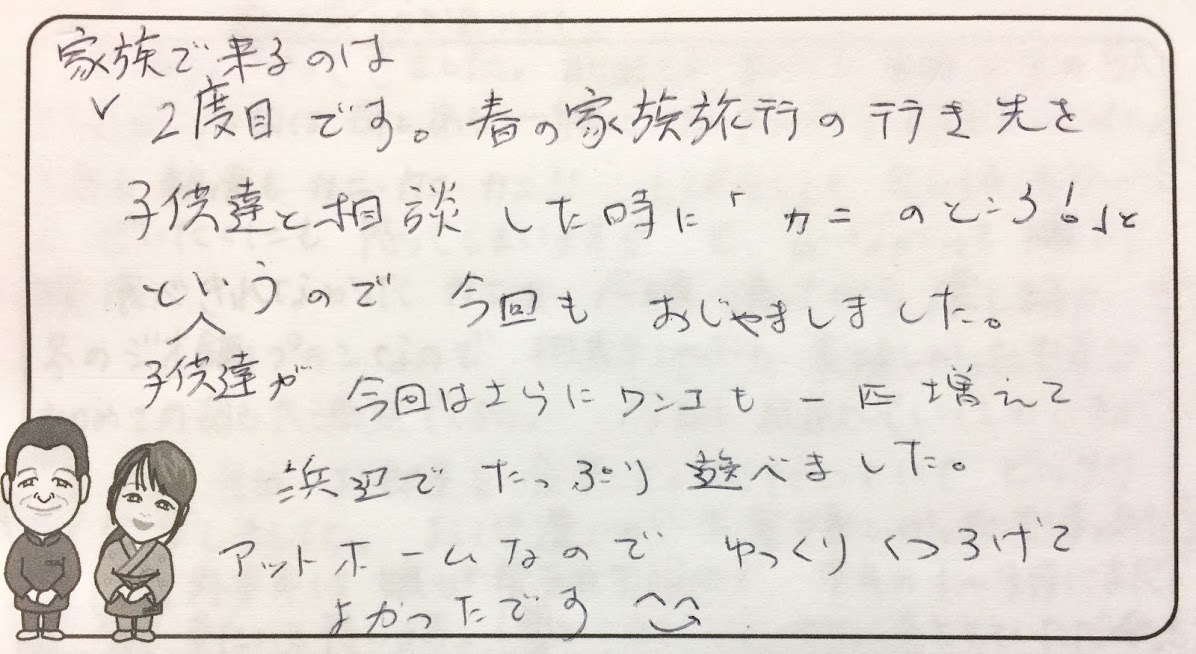 家族で来るのは
2度目です。春の家族旅行の行き先を
子供達と相談した時に「カニ のところ!」と
というので 今回も おじゃましました。
子供達が 今回はさらに ワンコも 一匹 増えて
浜辺で たっぷり 遊べました。
アットホームなので ゆっくり くつろげて
よかったです